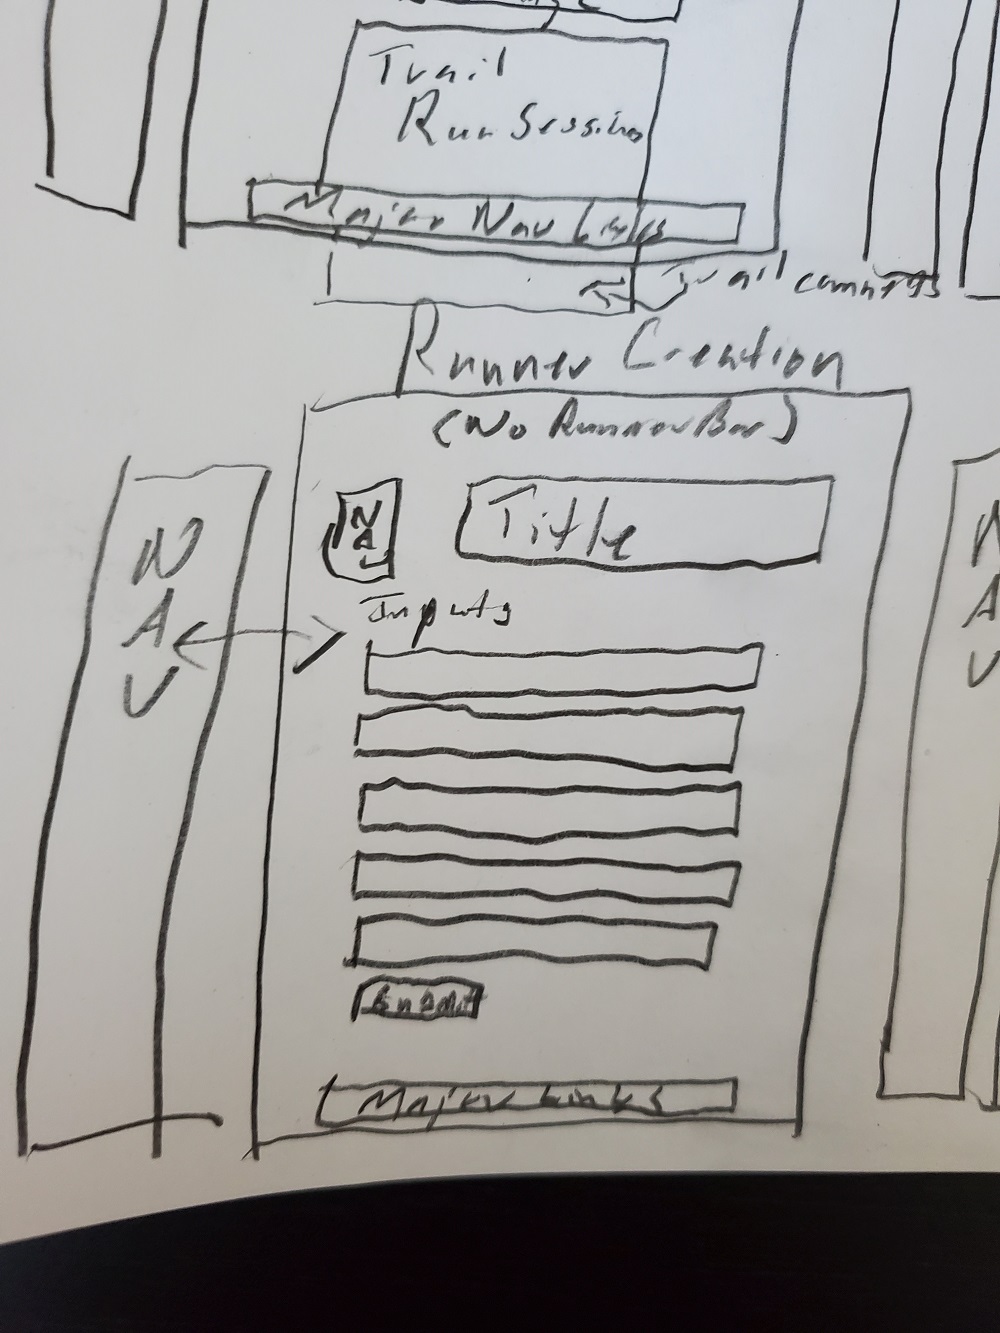 Trail
Run Session
Major Nav Links
Trail comments
Runner Creation
(No Runner Bar)
NAV
Title
NAV
NAV
Inputs
Submit
Major Links